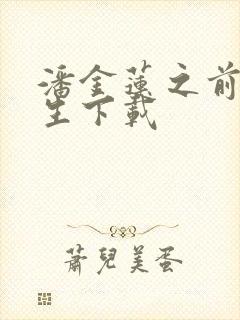 潘金蓮之前
生下載
蕭兒美蛋